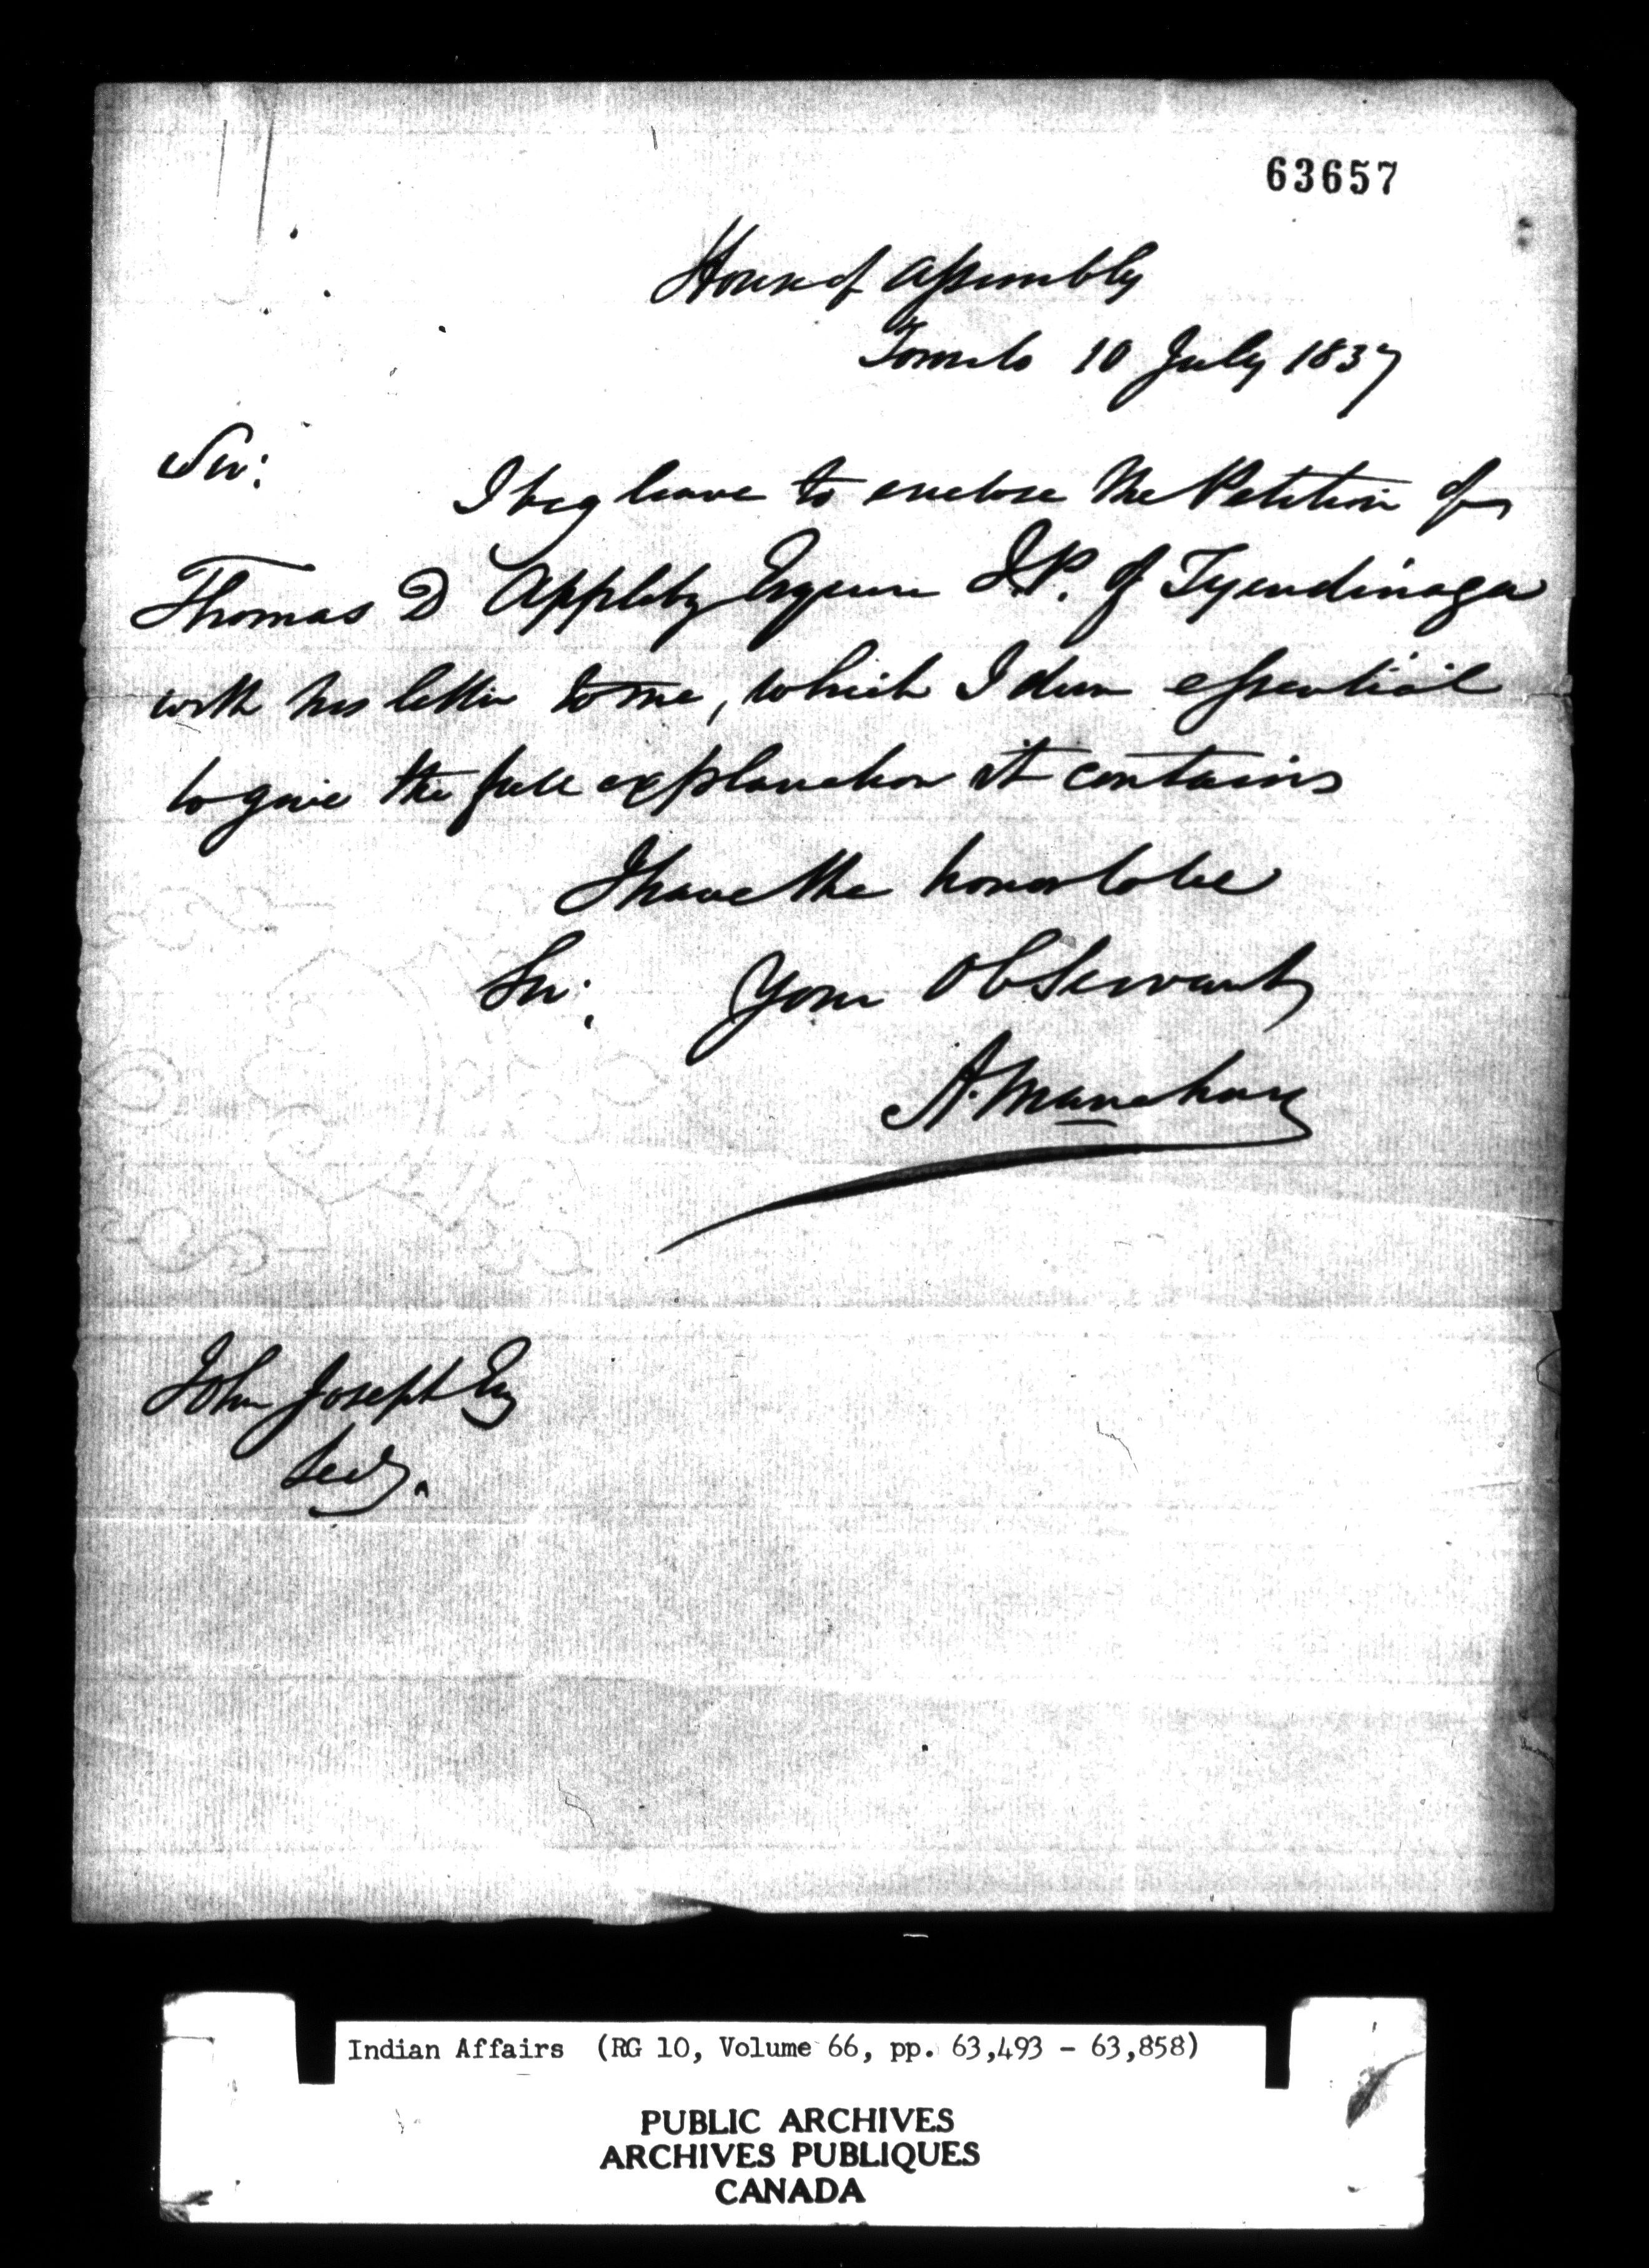 63657
House of Assembly
Toronto 10 July 1837
Sir:
I beg leave to enclose the Petition of
Thomas D Appleby Esquire J.P. of Tyendinaga
with his letter to me, which I deem essential
to give the full explanation it contains
I have the honor to be
Sir: Your Ob Servant
A. Manahan
John Joseph Esq
Secy.
Indian Affairs (RG 10, Volume 66, pp. 63,493 - 63,858)
PUBLIC ARCHIVES
ARCHIVES PUBLIQUES
CANADA